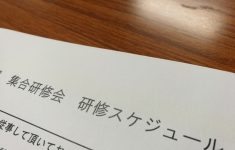 集合研修会 研修スケジュール
従事して頂いてお